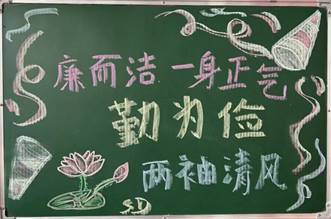 廉而洁 一身正气
勤为俭
两袖清风
SD